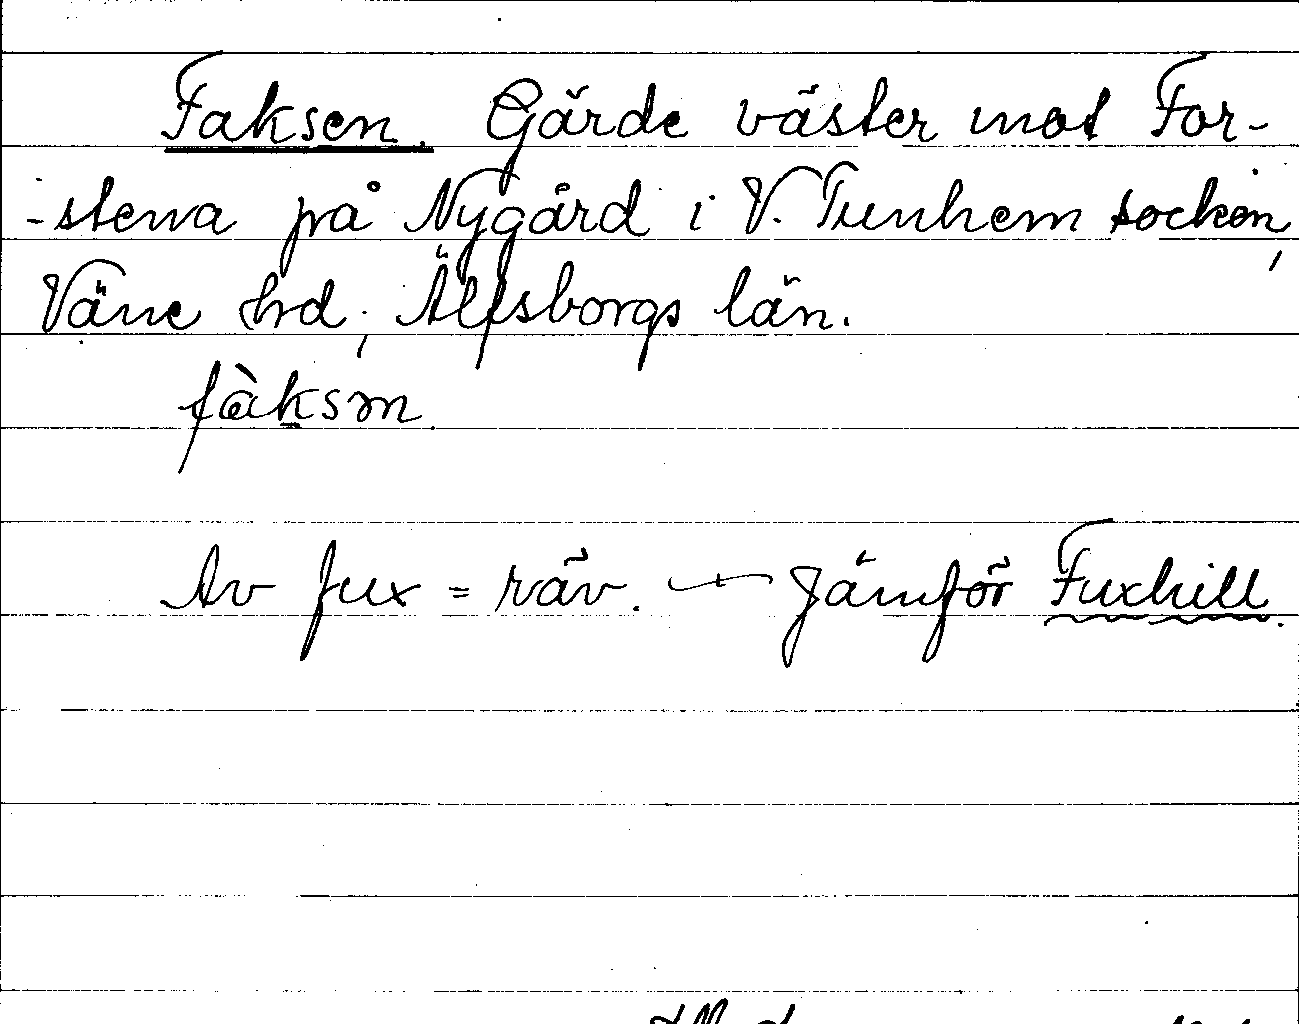 Faksen. Gärde väster mot For-
-stena på Nygård i V. Tunhem socken,
Väne hrd, Älfsborgs län.
fàksən.
Av fux = räv. — Jämför Fuxhill.